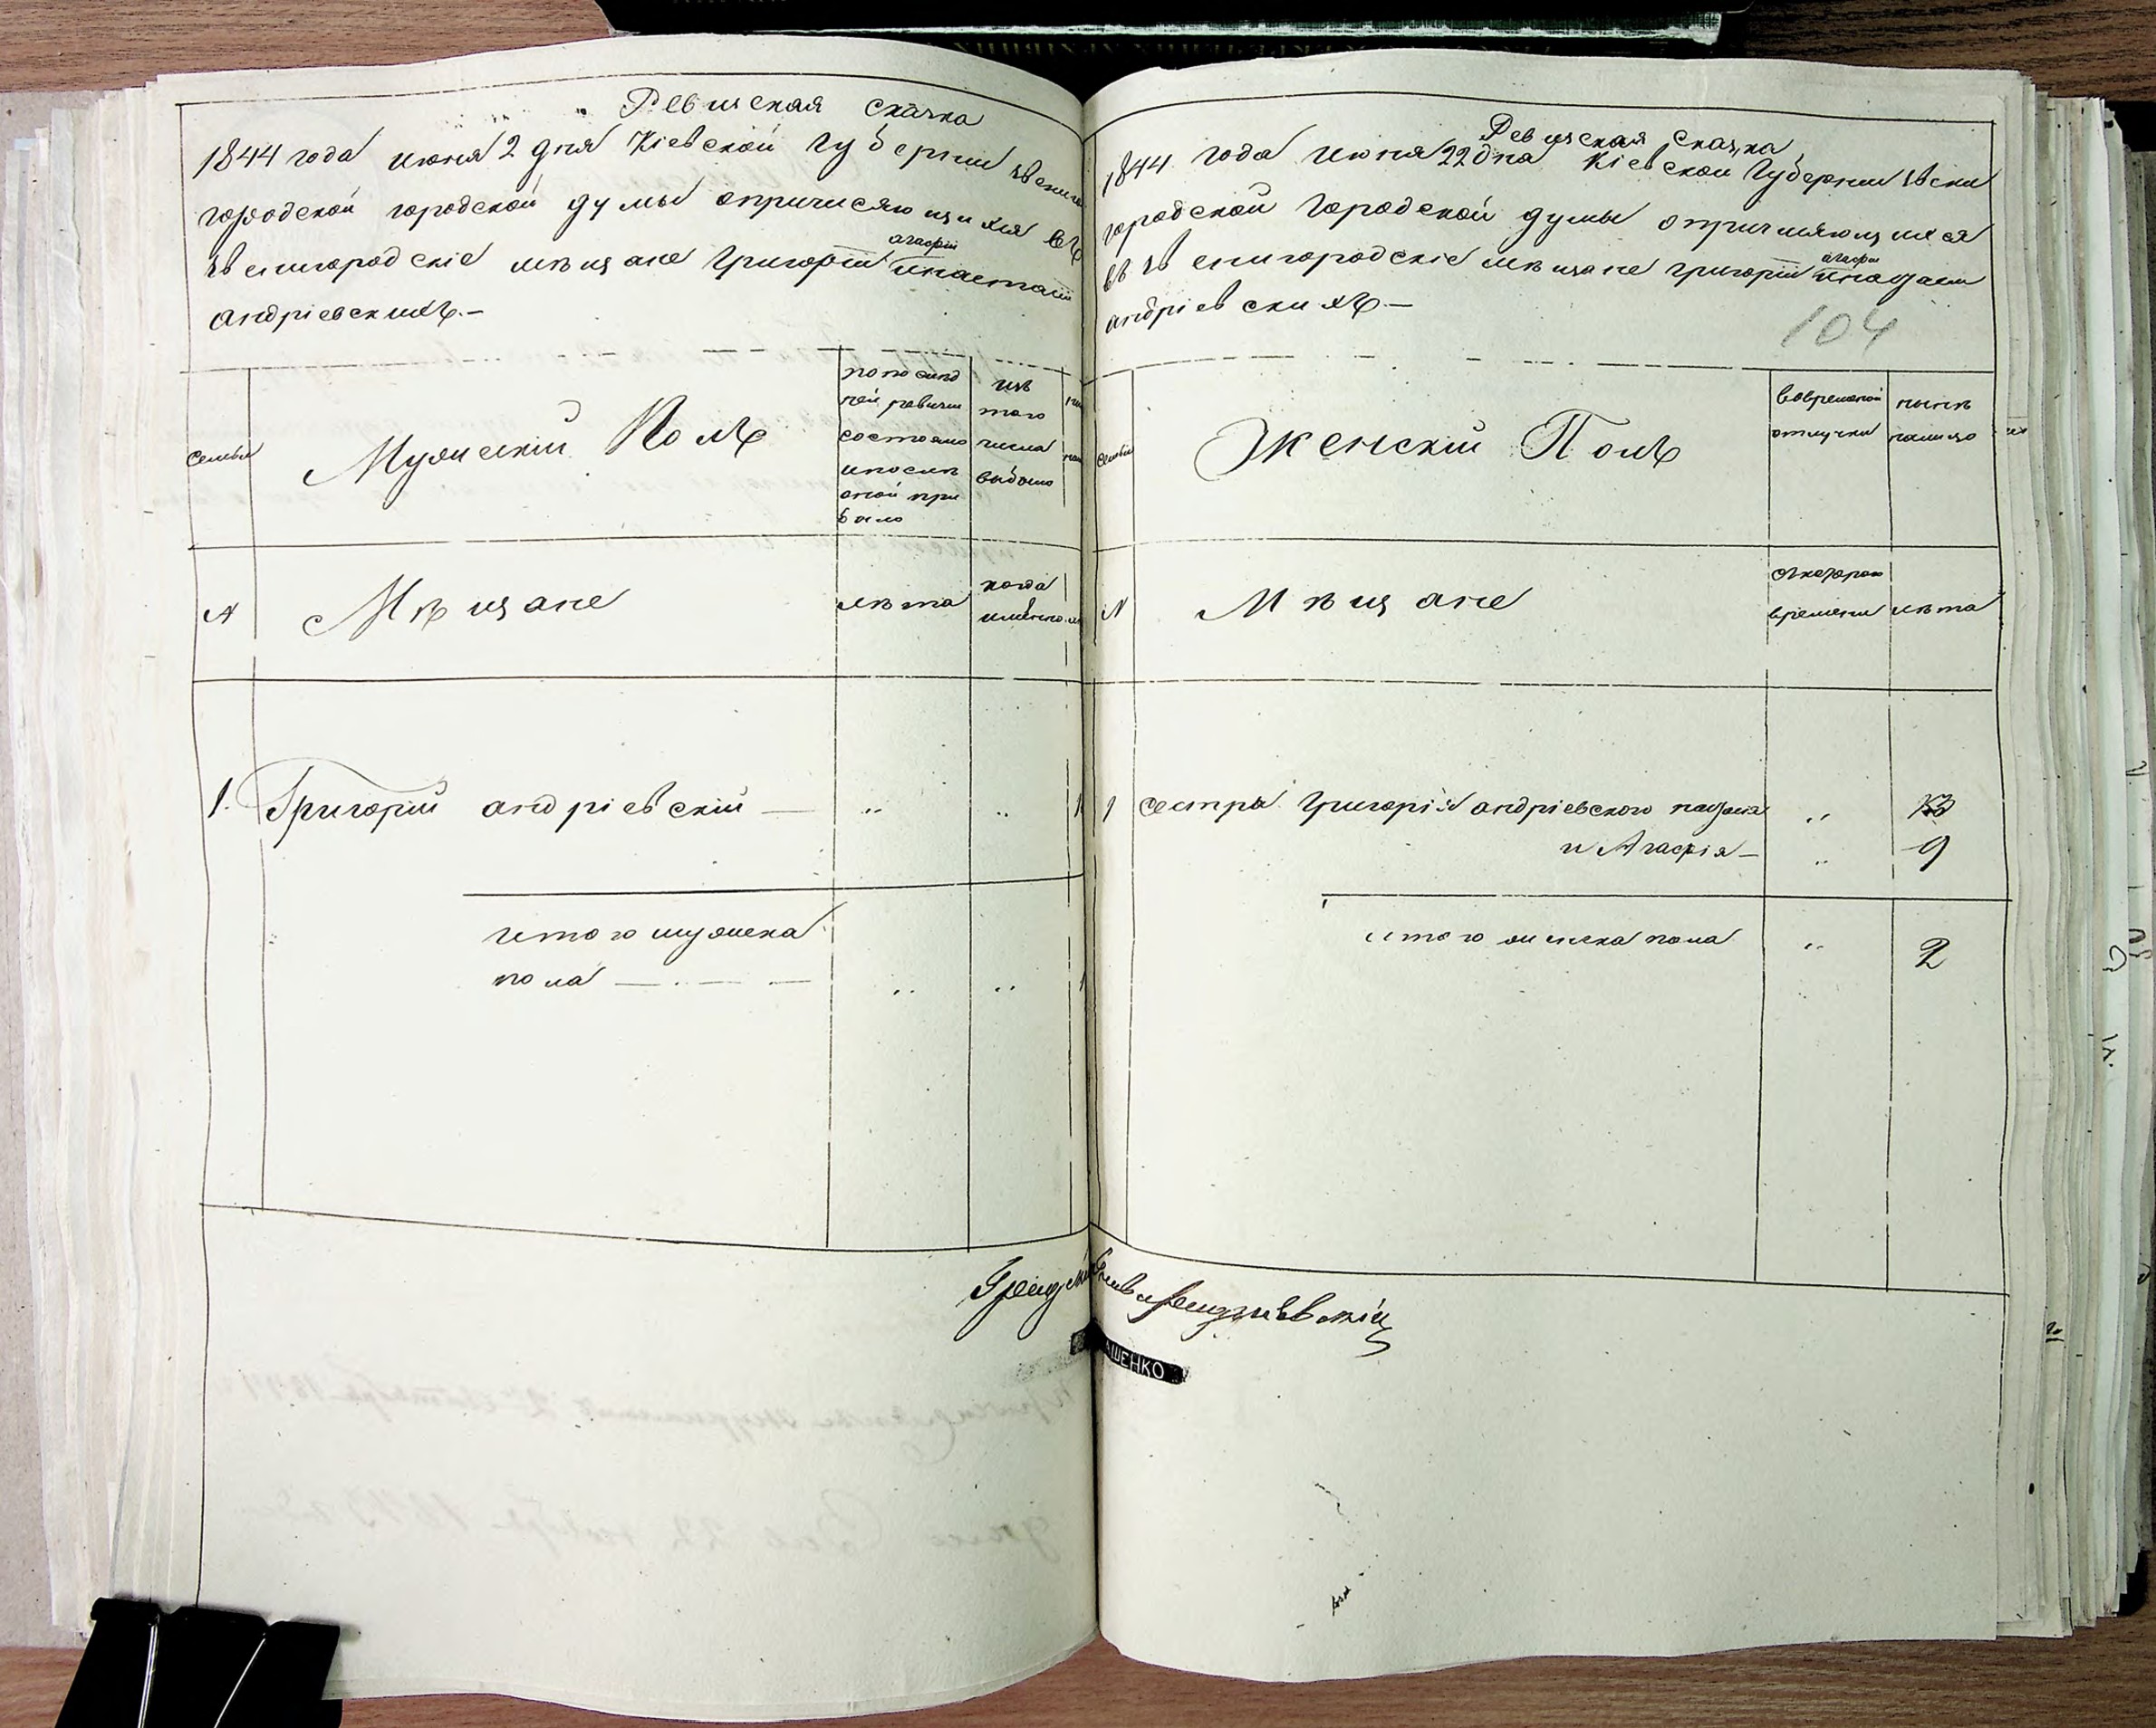 Ревизская сказка
1844 года июня 2 дня Кіевской Губерніи
городской городской думы опричисляющихся въ
агафіи
звенигородскіе мѣщане Григорій
андріевскихъ.–
семьи
Мужескій Полъ
по послѣд
ней ревизіи
состояло
и послѣ
оной при
было
изъ
того
числа
выбыло
N
Мѣщане
лѣта
когда
именно
1. Григорій андріевскій —
итого мужеска
пола —
Ревизская Сказка
1844 года июня 22 дня Кіевской Губерніи Звени
городской Городской думы о причисляющихся
агафіи
въ звенигородскіе мѣщане григорій
андріевскихъ —
104
семьи
Женскій Полъ
во временной
отлучки
нынѣ
налицо
N
Мѣщане
съ котораго
времени
лѣта
1 сестры Григорія андріевского 13
и Агафія – 9
итого женска пола 2
АШЕНКО